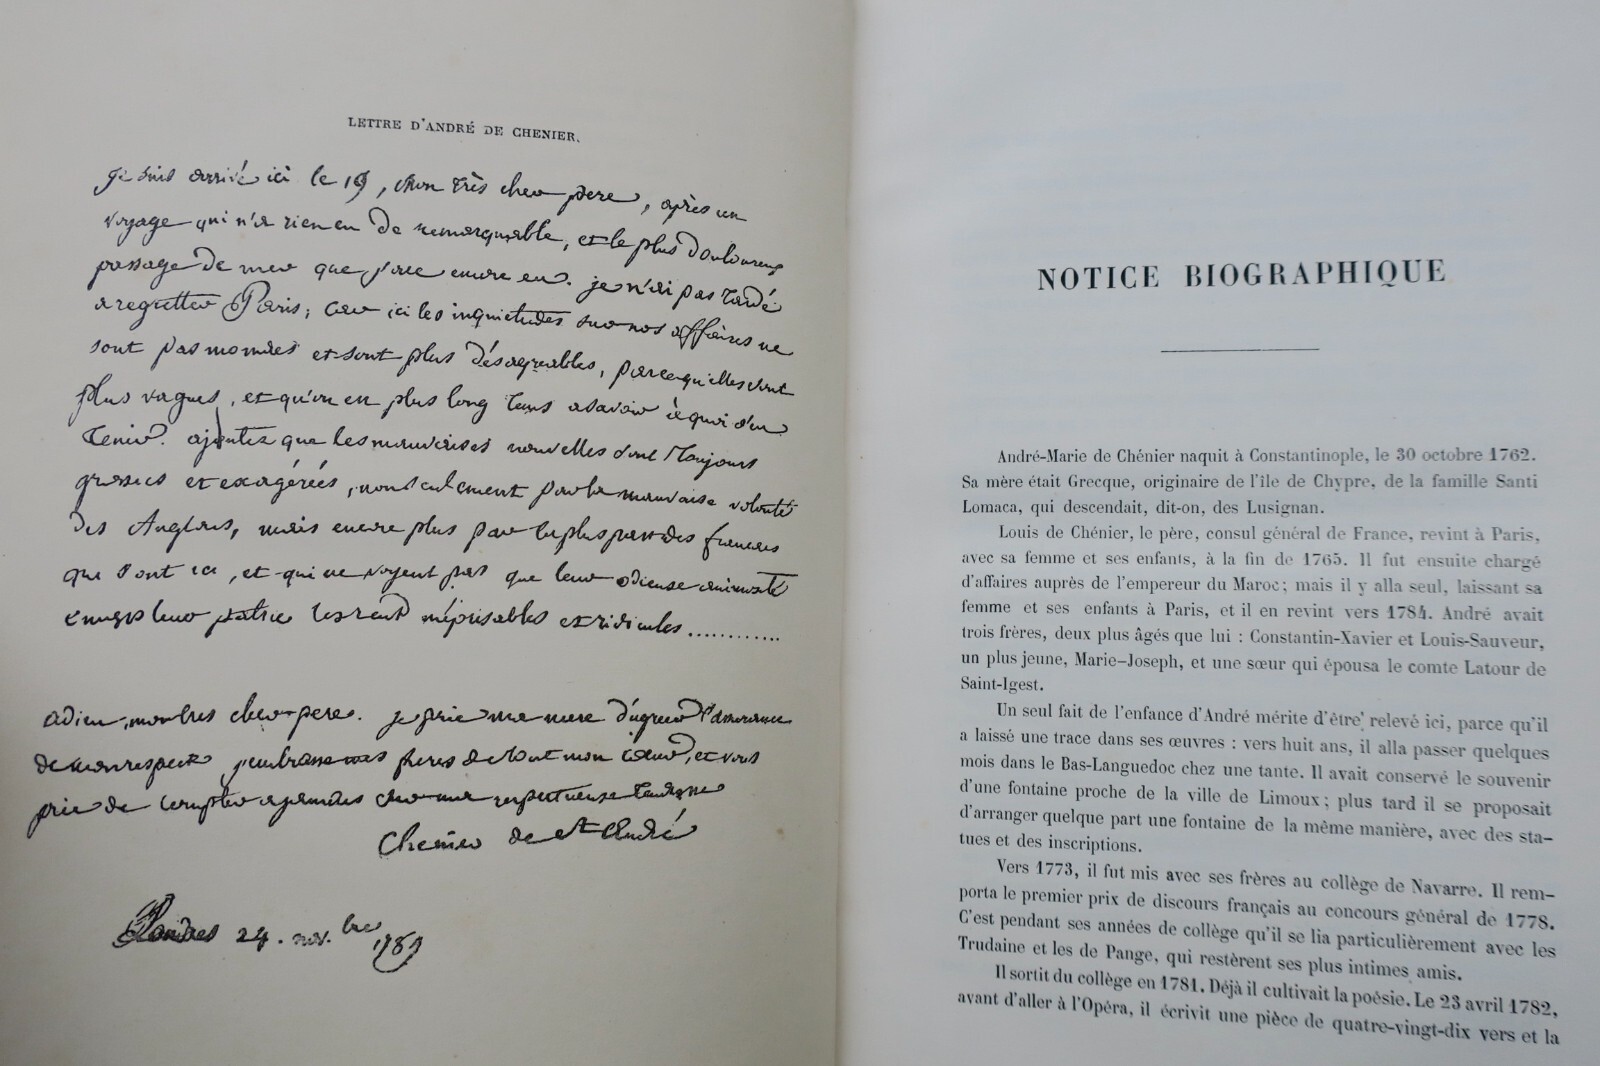 LETTRE D'ANDRÉ DE CHENIER.
je suis arrivé ici le 19, mon très cher pere, après un
voyage qui n'a rien eu de remarquable, et le plus douloureux
passage de mer que j'aie encore eu. je n'ai pas tardé
a regretter Paris; car ici les inquietudes sur nos affaires ne
sont pas moindres et sont plus désagreables, parcequ'elles sont
plus vagues, et qu'on en plus long tems a savoir à quoi s'en
tenir. ajoutez que les mauvaises nouvelles sont toujours
grossies et exagérées, non seulement par la mauvaise volonté
des Anglois, mais encore plus par la plus part des francois
qui sont ici, et qui ne voyent pas que leur odieuse animosité
envers leur patrie les rend méprisables et ridicules............
adieu, mon tres cher pere. je prie ma mere d'agreer l'assurance
de mon respect. j'embrasse mes freres de tout mon cœur, et vous
prie de compter a jamais sur ma respectueuse tendresse
Chenier de St André
Londres 24. nov.bre 1789
NOTICE BIOGRAPHIQUE
André-Marie de Chénier naquit à Constantinople, le 30 octobre 1762.
Sa mère était Grecque, originaire de l'île de Chypre, de la famille Santi
Lomaca, qui descendait, dit-on, des Lusignan.
Louis de Chénier, le père, consul général de France, revint à Paris,
avec sa femme et ses enfants, à la fin de 1765. Il fut ensuite chargé
d'affaires auprès de l'empereur du Maroc; mais il y alla seul, laissant sa
femme et ses enfants à Paris, et il en revint vers 1784. André avait
trois frères, deux plus âgés que lui : Constantin-Xavier et Louis-Sauveur,
un plus jeune, Marie-Joseph, et une sœur qui épousa le comte Latour de
Saint-Igest.
Un seul fait de l'enfance d'André mérite d'être relevé ici, parce qu'il
a laissé une trace dans ses œuvres : vers huit ans, il alla passer quelques
mois dans le Bas-Languedoc chez une tante. Il avait conservé le souvenir
d'une fontaine proche de la ville de Limoux; plus tard il se proposait
d'arranger quelque part une fontaine de la même manière, avec des sta-
tues et des inscriptions.
Vers 1773, il fut mis avec ses frères au collège de Navarre. Il rem-
porta le premier prix de discours français au concours général de 1778.
C'est pendant ses années de collège qu'il se lia particulièrement avec les
Trudaine et les de Pange, qui restèrent ses plus intimes amis.
Il sortit du collège en 1781. Déjà il cultivait la poésie. Le 23 avril 1782,
avant d'aller à l'Opéra, il écrivit une pièce de quatre-vingt-dix vers et la